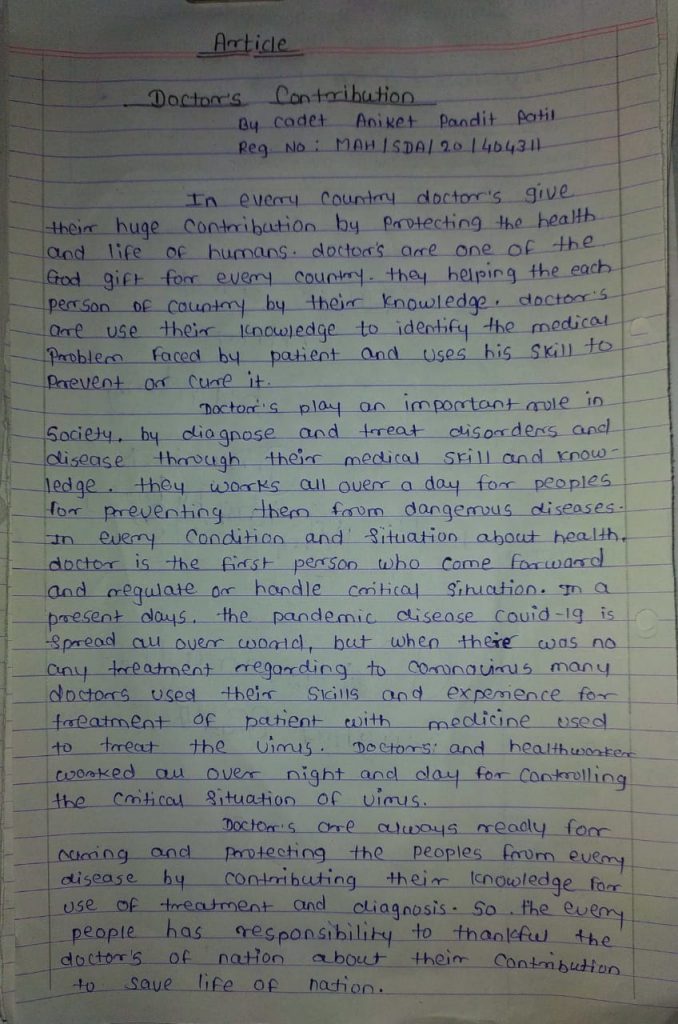 Article
Doctor's Contribution
By Cadet Aniket Pandit Patil
Reg No : MAH/SDA/20/404311
In every country doctor's give
their huge contribution by protecting the health
and life of humans. doctor's are one of the
God gift for every country. they helping the each
person of country by their knowledge. doctor's
are use their knowledge to identify the medical
Problem faced by patient and uses his skill to
Prevent or cure it.
Doctor's play an important role in
Society, by diagnose and treat disorders and
disease through their medical skill and know-
ledge. they works all over a day for peoples
for preventing them from dangerous diseases.
In every Condition and Situation about health,
doctor is the first person who come forward
and regulate or handle critical situation. In a
present days, the pandemic disease covid-19 is
spread all over world, but when there was no
any treatment regarding to coronavirus many
doctors used their skills and experience for
treatment of patient with medicine used
to treat the virus. Doctors and healthworker
worked all over night and day for controlling
the critical situation of virus.
Doctor's are always ready for
curing and protecting the peoples from every
disease by contributing their knowledge for
use of treatment and diagnosis. So, the every
people has responsibility to thankful the
doctor's of nation about their contribution
to save life of nation.